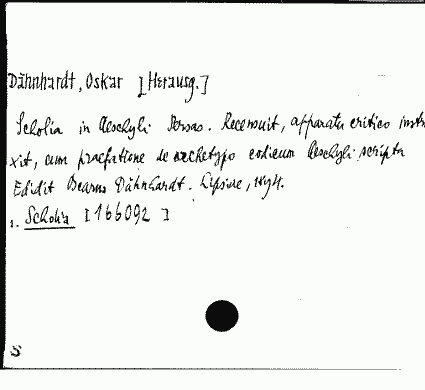 Dähnhardt, Oskar [Herausg.]
Scholia in Aeschyli Persas. Recensuit, apparatu critico instru
xit, cum praefatione de archetypo codicum Aeschyli scripta
Edidit Dähnhardt. Lipsiae, 1894.
1. Scholia [166092]
S